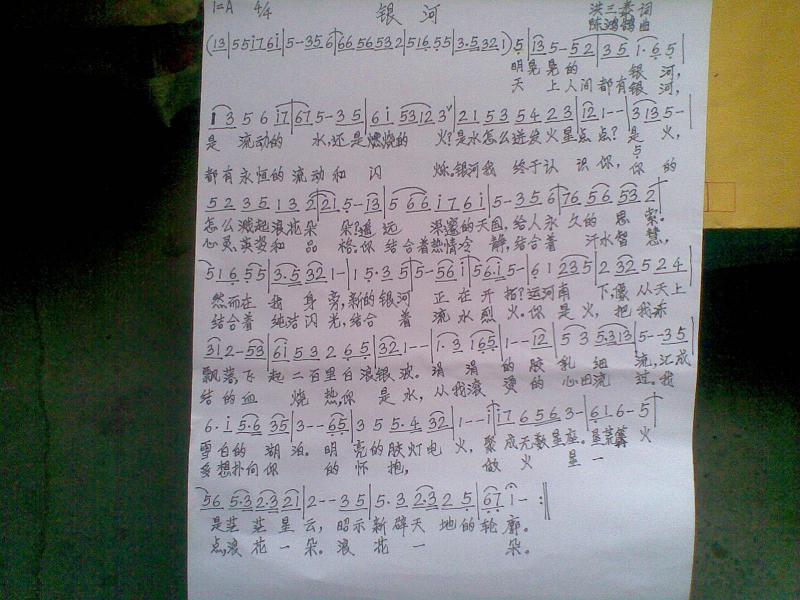 1=A 4/4 银河 洪三泰 词
陈鸿鹄 曲
(13|55i76i|5-356|6656532|51655|3·5321)5|135-52|351·65|
明晃晃的 银河,
天上人间都有银河,
i356i7|675-35|6i53123|21535423|121--|3135-|
是流动的水,还是燃烧的火?是水怎么迸发火星点点?是火,
都有永恒的流动和闪烁.银河我终于认识你,你的
5235132|215-13|566176i|5-356|7656532|
怎么溅起浪花朵朵?遥远深邃的天国,给人永久的思索.
心灵英姿和品格.你结合着热情冷静,结合着汗水智慧,
51655|3·5321-|15·35|5-56i|56·i5-|61235|2325524|
然而在我身旁,新的银河正在开拓?运河南下,像从天上
结合着纯洁闪光,结合着流水烈火.你是火,把我赤
312-53|6i53265|321--|1·3165|1--12|535·313|5--35|
飘落,飞起二百里白浪银波.涓涓的胶乳细流,汇成
结的血烧热,你是水,从我滚烫的心田流过.我
6·i5·635|3--65|355·432|1--i|i76563-|616-5|
雪白的湖泊.明亮的胶灯电火,聚成无数星座.星星篝火
多想扑向你的怀抱,做火星一
565·32·321|2--35|5·32·325|67i-:||
是茫茫星云,昭示新辟天地的轮廓。
点,浪花一朵.浪花一朵。